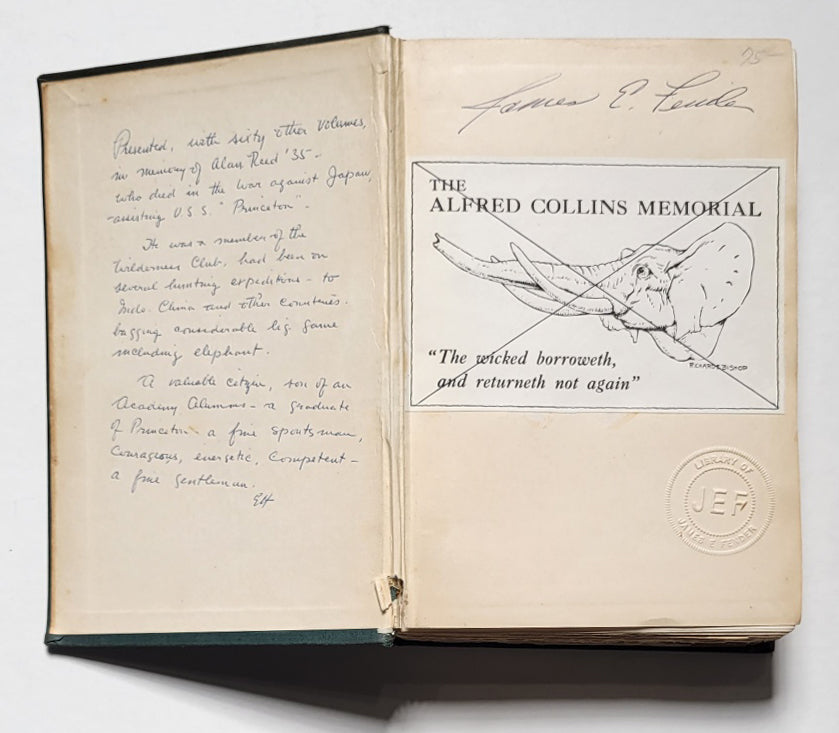 Presented, with sixty other volumes,
in memory of Alan Reed '35 -
who died in the war against Japan,
- assisting U.S.S. "Princeton" -
He was a member of the
Wilderness Club, had been on
several hunting expeditions - to
Indo. China and other countries.
bagging considerable big game
including elephant.
A valuable citizen, son of an
Academy Alumnus - a graduate
of Princeton - a fine sportsman,
Courageous, energetic, Competent -
a fine gentleman.
EH
75
James E. Fender
THE
ALFRED COLLINS MEMORIAL
RICHARD E BISHOP
"The wicked borroweth,
and returneth not again"
LIBRARY OF
JEF
JAMES E FENDER